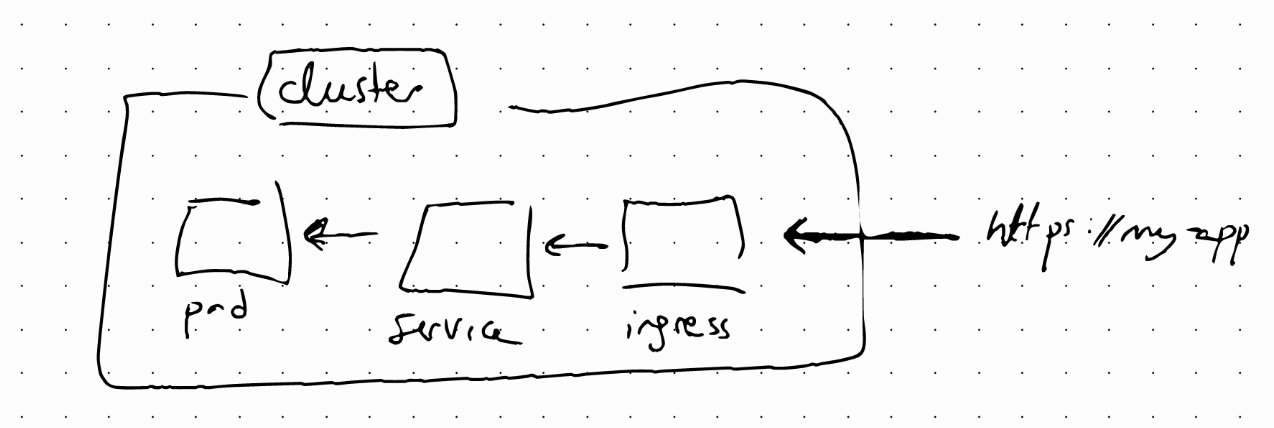 cluster
pod
service
ingress
https://my-app